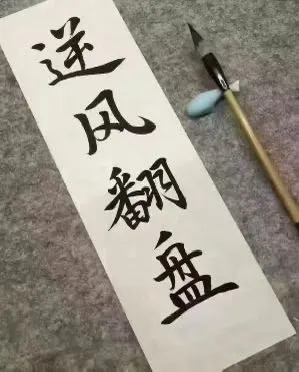 逆风翻盘